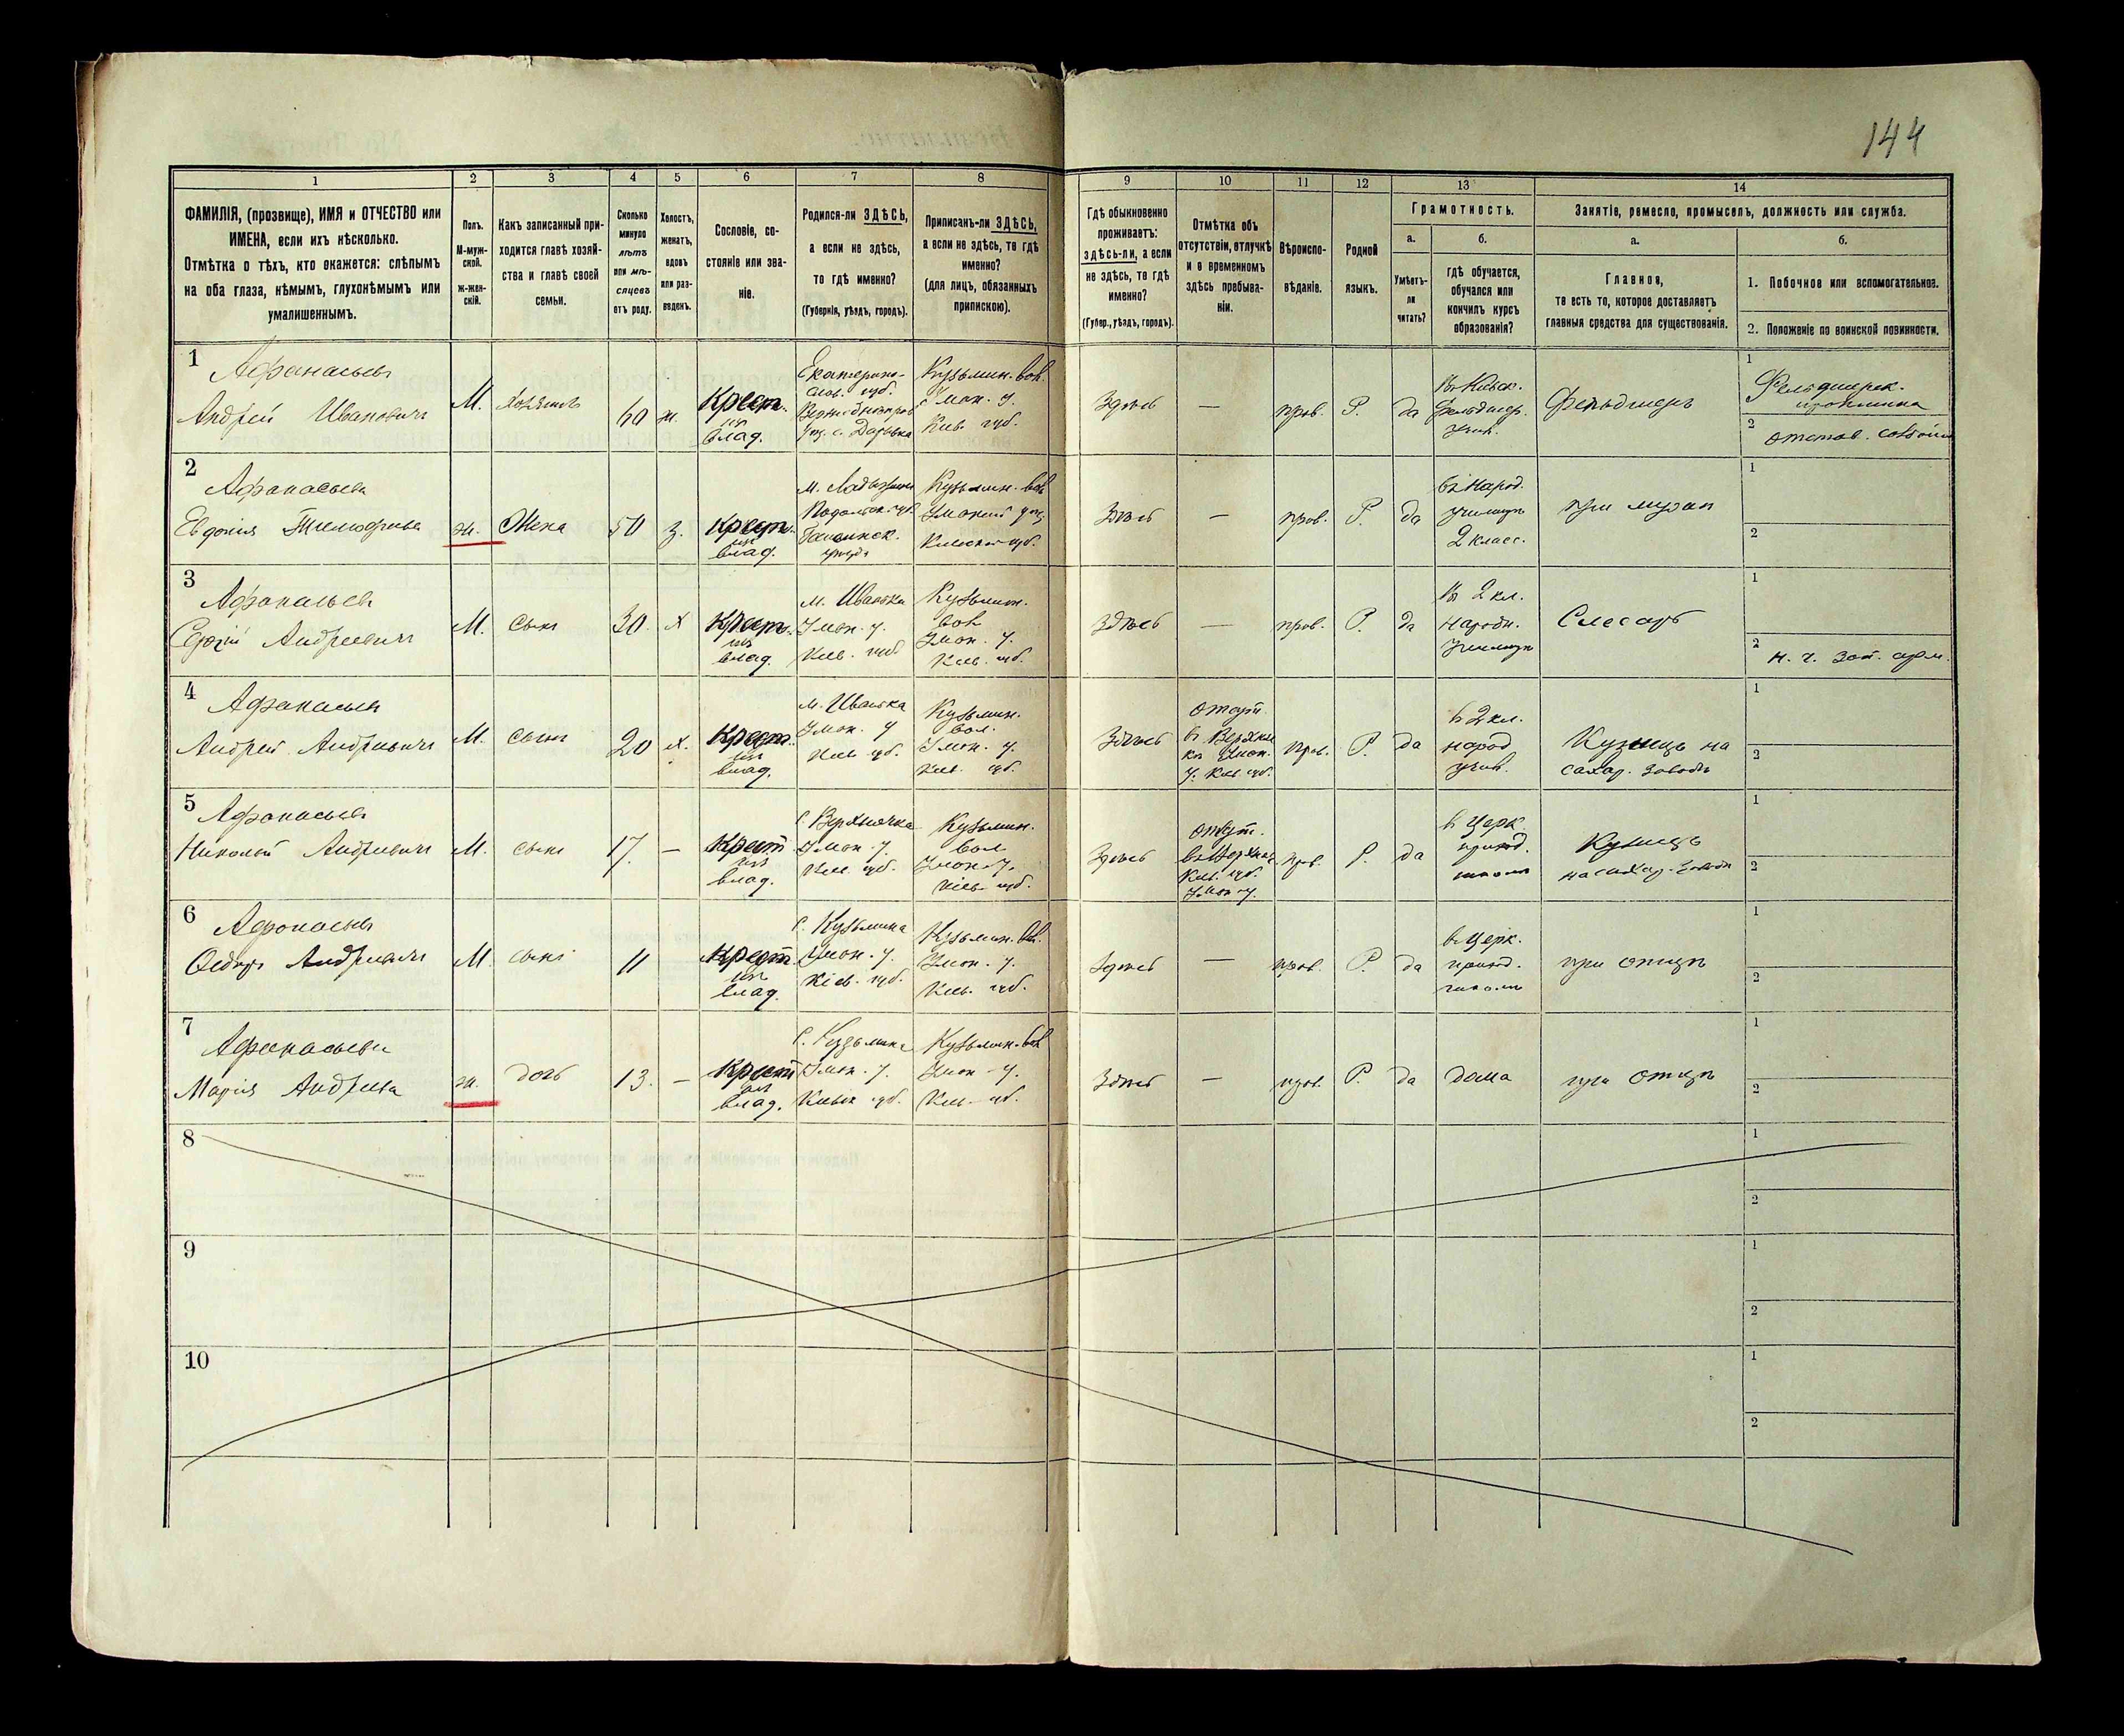 144
1 2 3 4 5 6 7 8 9 10 11 12 13 14
ФАМИЛІЯ, (прозвище), ИМЯ и ОТЧЕСТВО или
ИМЕНА, если ихъ нѣсколько.
Отмѣтка о тѣхъ, кто окажется: слѣпымъ
на оба глаза, нѣмымъ, глухонѣмымъ или
умалишеннымъ.
Полъ.
М-муж-
ской.
ж-жен-
скій.
Какъ записанный при-
ходится главѣ хозяй-
ства и главѣ своей
семьи.
Сколько
минуло
лѣтъ
или мѣ-
сяцевъ
отъ роду.
Холостъ,
женатъ,
вдовъ
или раз-
веденъ.
Сословіе, со-
стояніе или зва-
ніе.
Родился-ли ЗДѢСЬ,
а если не здѣсь,
то гдѣ именно?
(Губернія, уѣздъ, городъ).
Приписанъ-ли ЗДѢСЬ,
а если не здѣсь, то гдѣ
именно?
(для лицъ, обязанныхъ
припискою).
Гдѣ обыкновенно
проживаетъ:
здѣсь-ли, а если
не здѣсь, то гдѣ
именно?
(Губер., уѣздъ, городъ).
Отмѣтка объ
отсутствіи, отлучкѣ
и о временномъ
здѣсь пребыва-
ніи.
Вѣроиспо-
вѣданіе.
Родной
языкъ.
Грамотность.
а.
Умѣетъ-
ли
читать?
б.
гдѣ обучается,
обучался или
кончилъ курсъ
образованія?
Занятіе, ремесло, промыселъ, должность или служба.
а.
Главное,
то есть то, которое доставляетъ
главныя средства для существованія.
б.
1. Побочное или вспомогательное.
2. Положеніе по воинской повинности.
1
Афанасьевъ
Андрей Ивановичъ
М.
хозяинъ
60
ж.
Крест.
изъ
влад.
Екатерино-
слав. губ.
Кузьмин. вол.
Уман. у.
Кіев. губ.
Здѣсь
—
прав.
Р.
да
Въ Кіевск.
фельдшер.
учил.
Фельдшеръ
1
Фельдшерск.
2
отстав.
2
Афанасьева
Евдокія
ж.
Жена
50
з.
Крест.
изъ
влад.
Кузьмин. вол.
Уманск. уѣз.
Кіевской губ.
Здѣсь
—
прав.
Р.
да
въ Народ.
училищѣ
2 класс.
при мужѣ
1
2
3
Афанасьевъ
Сергій Андреевичъ
М.
сынъ
30.
х
Крест.
изъ
влад.
м. Иваньки
Уман. у.
Кіев. губ
Кузьмин.
вол
Уман. у.
Кіев. губ.
Здѣсь
—
прав.
Р.
да
Въ 2 кл.
народн.
училищѣ
Слесарь
1
2
н. ч. зап. арм.
4
Афанасьевъ
Андрей Андреевичъ
М.
сынъ
20
х.
Крест.
изъ
влад.
м. Иванька
Уман. у
Кіев. губ.
Кузьмин.
вол.
Уман. у.
Кіев. губ.
Здѣсь
у. Кіев. губ.
прав.
Р.
да
в 2 кл.
народ
учил.
Кузнецъ на
сахар. заводѣ
1
2
5
Афанасьевъ
Николай Андреевичъ
М.
сынъ
17.
—
Крест
изъ
влад.
с. Верхнячка
Уман. у.
Кіев. губ.
Кузьмин.
вол
Уман. у.
Кіев. губ.
Здѣсь
Кіев. губ.
Уман у.
прав.
Р.
да
в церк.
приход.
школѣ
Кузнецъ
на сахар. заводѣ
1
2
6
Афанасьевъ
Ѳедоръ Андреевичъ
М.
сынъ
11
Крест.
изъ
влад.
с. Кузьмина
Уман. у.
Кіев. губ.
Кузьмин. вол.
Уман. у.
Кіев. губ.
Здѣсь
—
прав.
Р.
да
в церк.
приход.
школѣ
при отцѣ
1
2
7
Афанасьева
Марія Андреева
ж.
дочь
13.
—
Крест
изъ
влад.
с. Кузьмина
Уман. у.
Кіевск губ.
Кузьмин. вол
Уман. у.
Кіев. губ.
Здѣсь
—
прав.
Р.
да
дома
при отцѣ
1
2
8
1
2
9
1
2
10
1
2